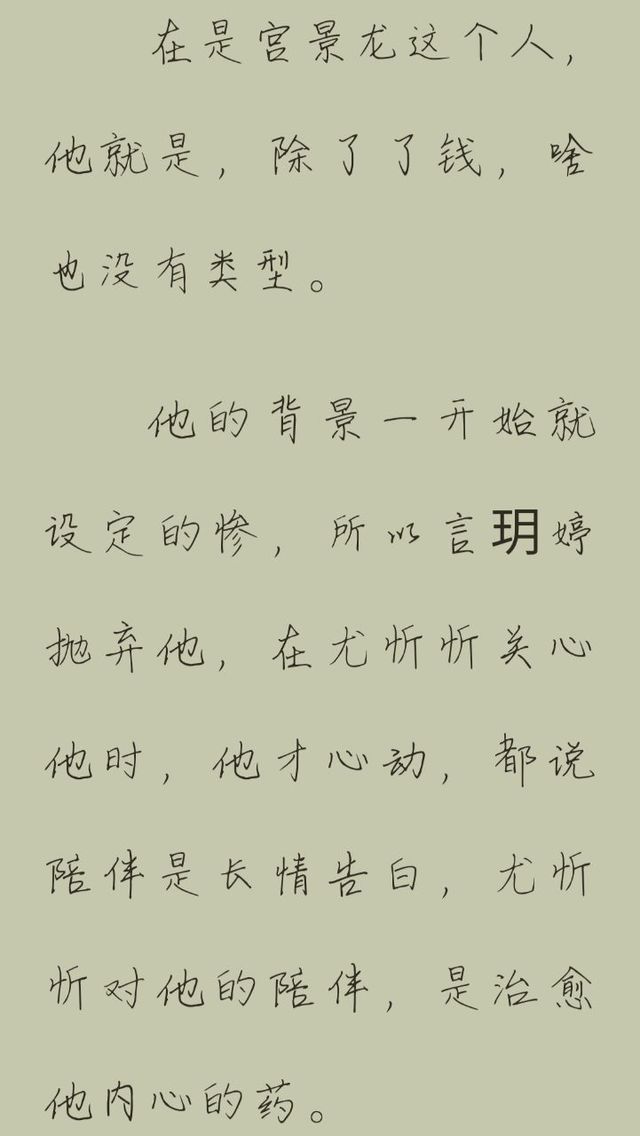 在是宫景龙这个人，
他就是，除了了钱，啥
也没有类型。
他的背景一开始就
设定的惨，所以言玥婷
抛弃他，在尤忻忻关心
他时，他才心动，都说
陪伴是长情告白，尤忻
忻对他的陪伴，是治愈
他内心的药。